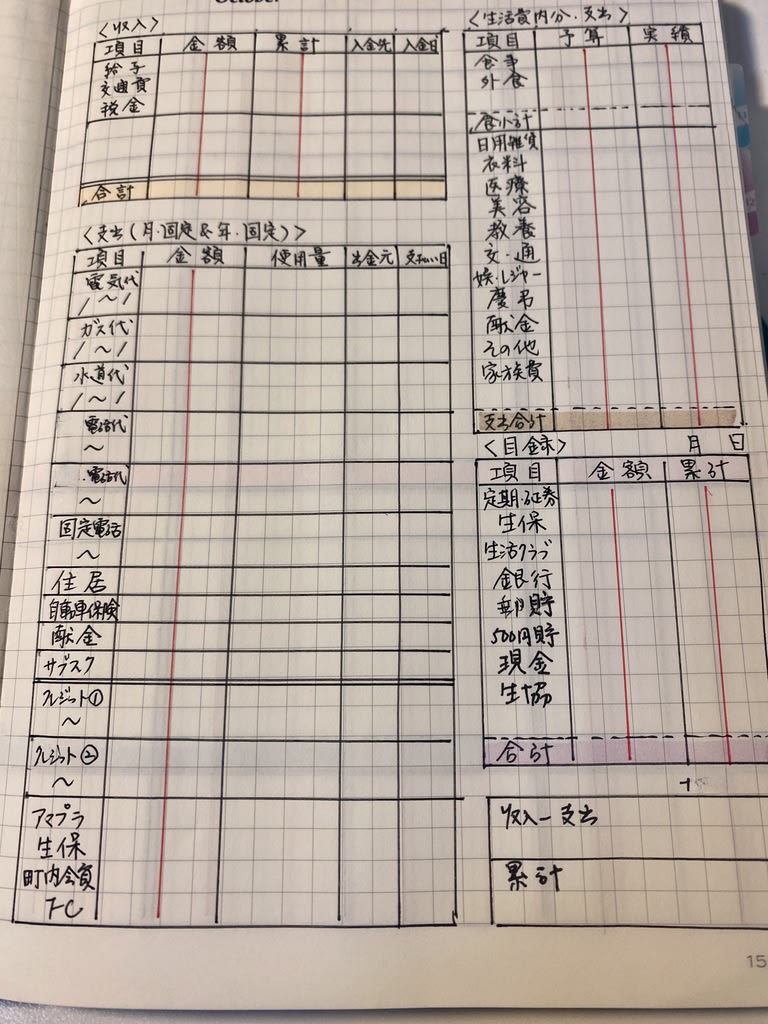 October
〈収入〉
項目 金額 累計 入金先 入金日
給与
交通費
税金
合計
〈支出(月・固定&年・固定)〉
項目 金額 使用量 出金元 支払い日
電気代
/～/
ガス代
/～/
水道代
/～/
電話代
～
電話代
～
固定電話
～
住居
自転車保険
献金
サブスク
クレジット①
～
クレジット②
～
アマプラ
生保
町内会費
FC
〈生活費内分・支出〉
項目 予算 実績
食事
外食
食小計
日用雑貨
衣料
医療
美容
教養
交・通
娯・レジャー
慶弔
献金
その他
家族費
支出合計
月 日
項目 金額 累計
定期・証券
生保
生活クラブ
銀行
郵貯
500円貯
現金
生協
合計
収入－支出
累計
15